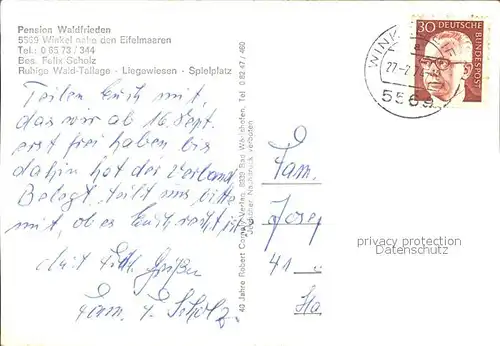 Pension Waldfrieden
5569 Winkel nahe den Eifelmaaren
Tel.: 0 65 73 / 344
Bes. Felix Scholz
Ruhige Wald-Tallage - Liegewiesen - Spielplatz
Teilen Euch mit,
das wir ab 16. Sept.
erst frei haben bis
dahin hat der Verband
Belegt. teilt uns bitte
mit, ob es Euch recht ist
Mit frdl. Grüßen
Fam. F. Scholz.
40 Jahre Robert Verlag, 8939 Bad Wörishofen. Tel. 0 82 47 / 460
Jeglicher Nachdruck verboten
30 DEUTSCHE
BUNDESPOST
WINK
5569
Fam.
Josef
41
Ha
privacy protection
Datenschutz